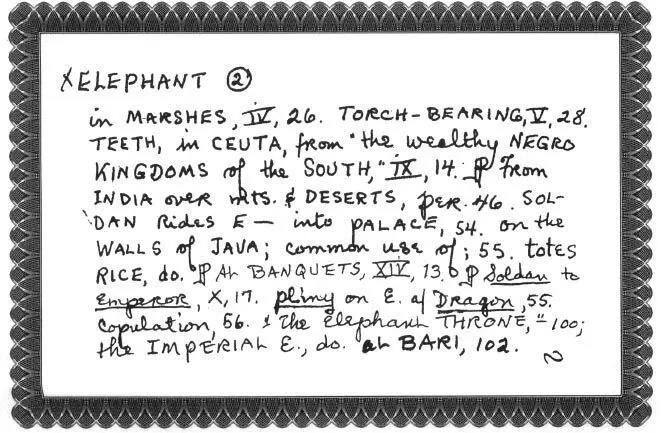 XELEPHANT ②
in MARSHES, IV, 26. TORCH-BEARING, V, 28.
TEETH, in CEUTA, from "the wealthy NEGRO
KINGDOMS of the SOUTH," IX, 14. ¶ From
INDIA over MTS. & DESERTS, per. 46. SOL-
DAN Rides E— into PALACE, 54. on the
WALLS of JAVA; common use of; 55. totes
RICE, do. ¶ At BANQUETS, XIV, 136 ¶ Soldan to
Emperor, X, 17. pliny on E. a/ Dragon, 55.
Copulation, 56. & "The Elephant THRONE," 100;
the IMPERIAL E., do. at BARI, 102.